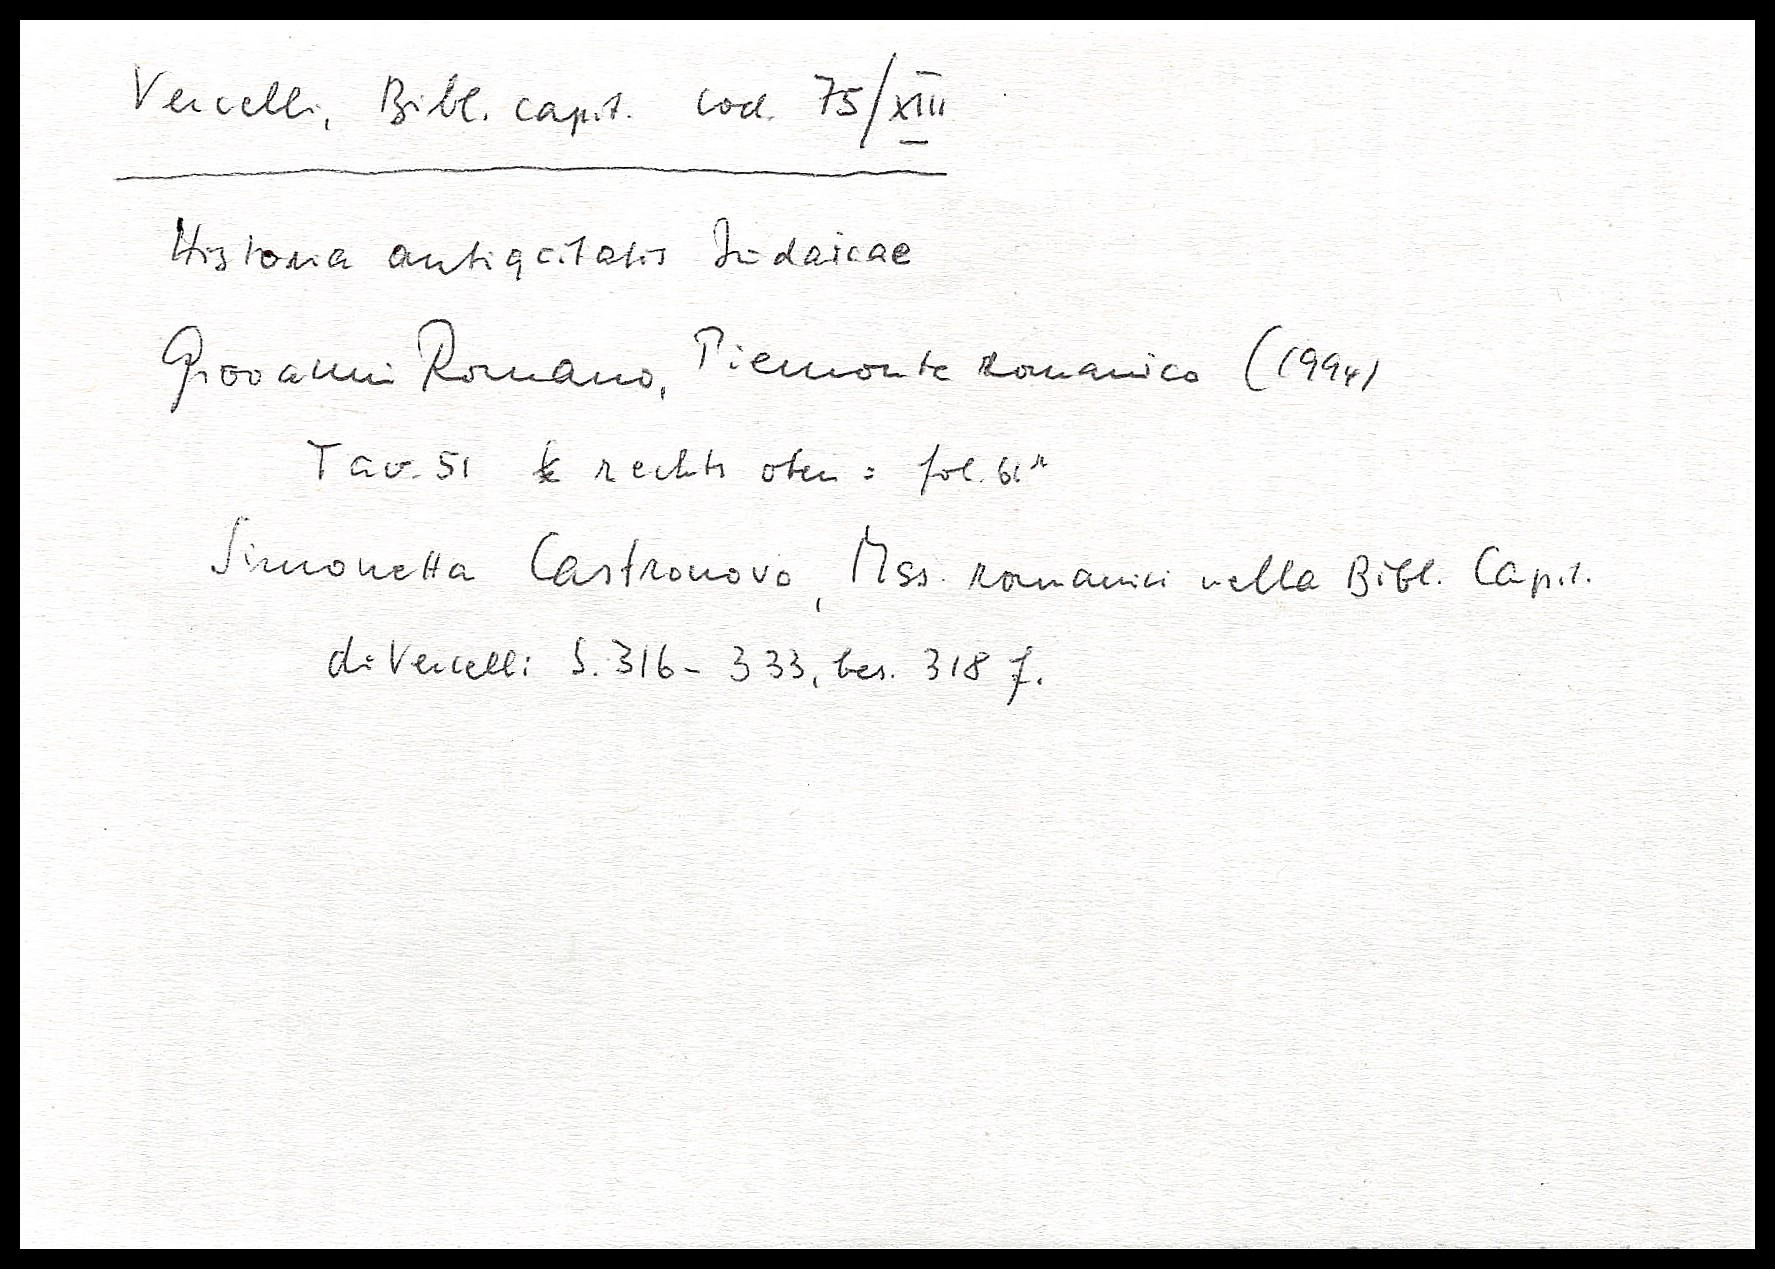 Vercelli, Bibl. capit. Cod. 75/XIII
Historia antiqcitatis Judaicae
Giovanni Romano, Piemonte romanico (1994)
Tav. 51 rechts oben : fol. 61r
Simonetta Castronovo, Mss. romanici nella Bibl. Capit.
di Vercelli S. 316-333, bes. 318 f.